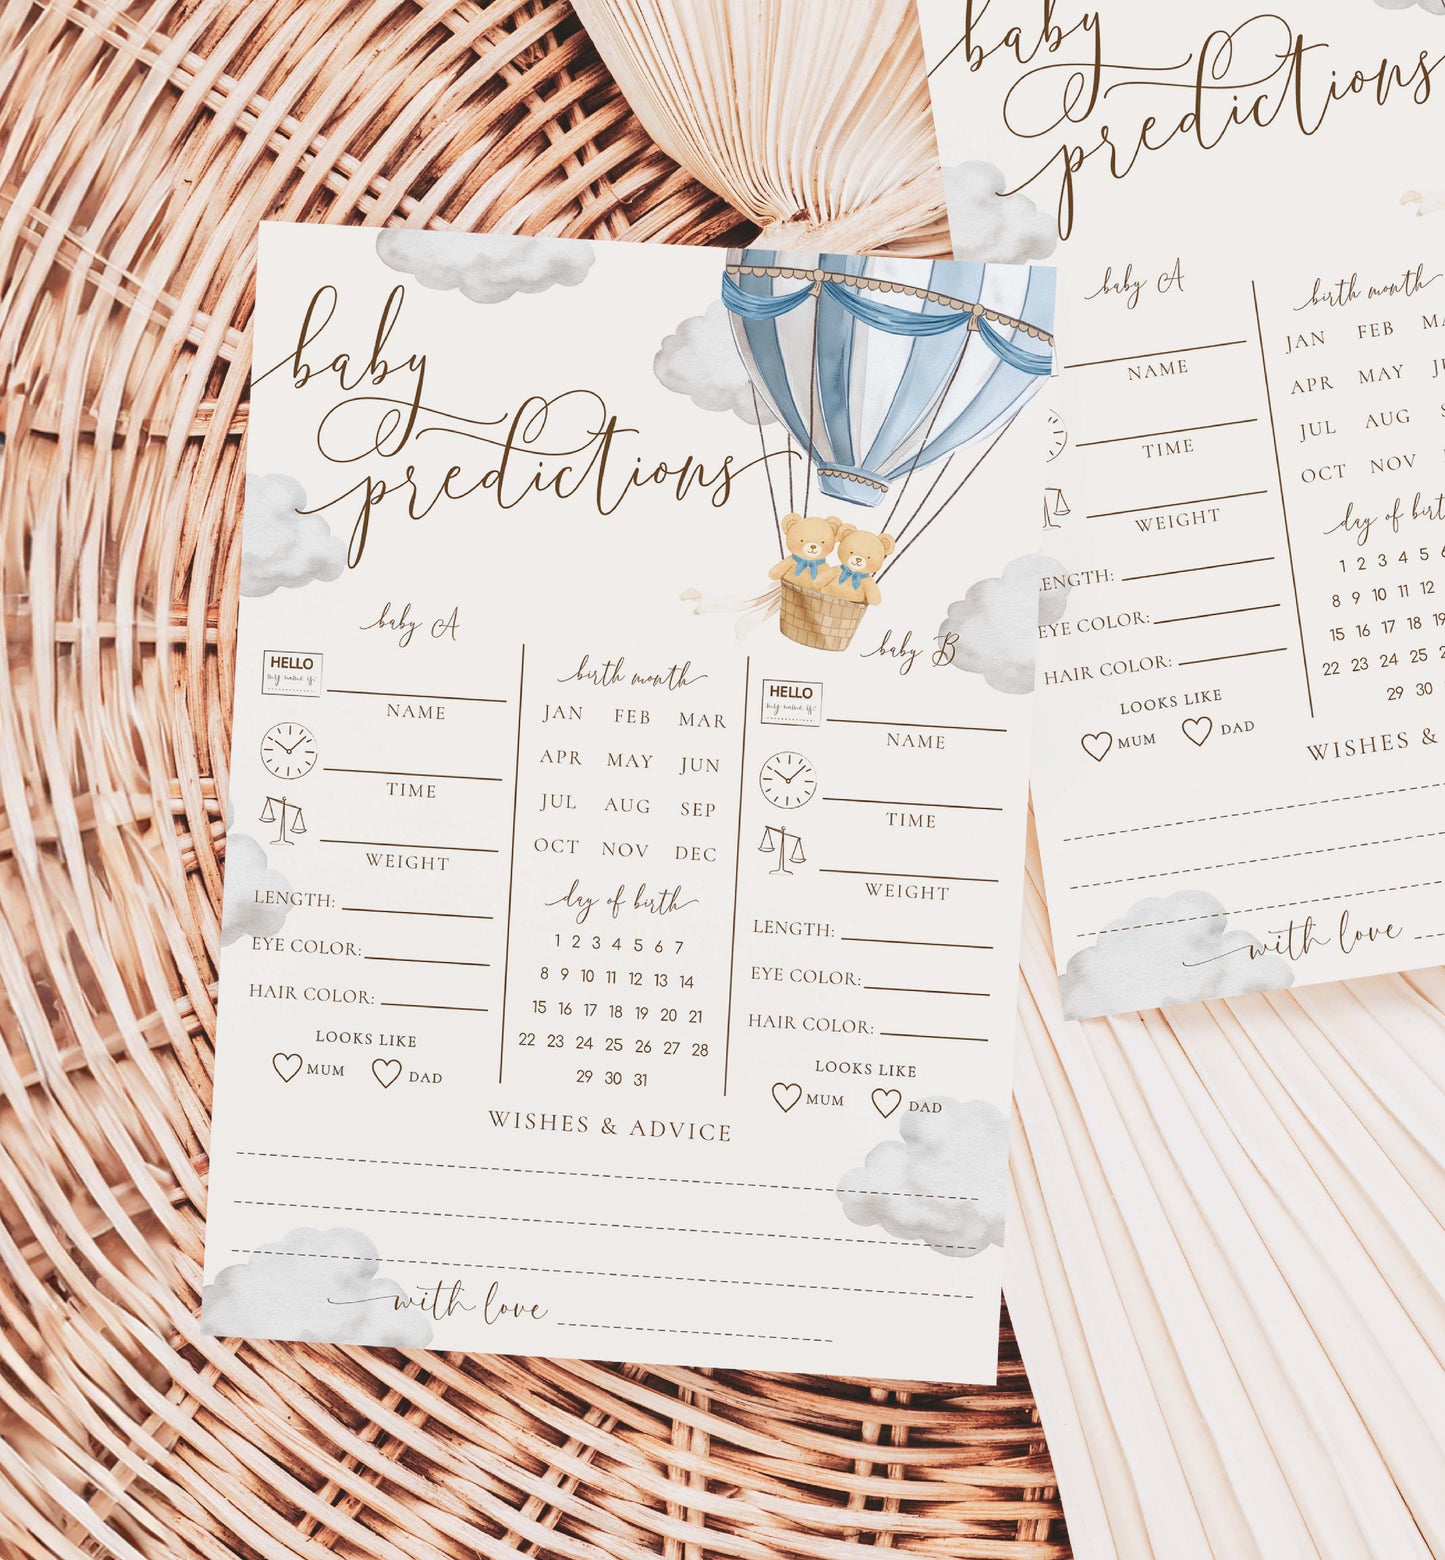 baby
predictions
baby A
HELLO
my name is:
NAME
TIME
WEIGHT
LENGTH:
EYE COLOR:
HAIR COLOR:
LOOKS LIKE
MUM DAD
birth month
JAN FEB MAR
APR MAY JUN
JUL AUG SEP
OCT NOV DEC
day of birth
1 2 3 4 5 6 7
8 9 10 11 12 13 14
15 16 17 18 19 20 21
22 23 24 25 26 27 28
29 30 31
baby B
HELLO
my name is:
NAME
TIME
WEIGHT
LENGTH:
EYE COLOR:
HAIR COLOR:
LOOKS LIKE
MUM DAD
WISHES & ADVICE
with love
baby
predictions
baby A
NAME
TIME
WEIGHT
LENGTH:
EYE COLOR:
HAIR COLOR:
LOOKS LIKE
MUM DAD
birth month
JAN FEB
APR MAY
JUL AUG
OCT NOV
day of
1 2 3 4 5
8 9 10 11 12
15 16 17 18
22 23 24 25
29 30
WISHES &
with love